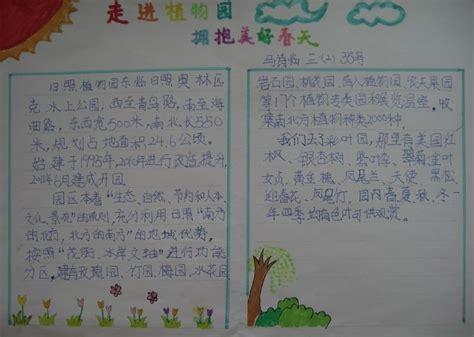 走进植物园
拥抱美好春天
三(2) 35号
日照植物园东临日照奥林匹
克水上公园,西至青岛路,南至海
曲路,东西宽500米,南北长550
米,规划占地面积24.6公顷。
始建于1995年,2010年进行改造提升,
2011年6月建成开园。
园区本着“生态、自然、节约和人本
文化景观”的原则,充分利用日照“南方
的北方,北方的南方”的地域优势,
按照“ 街、本年文抽”进行功能
分区,建有玫瑰园、竹园、梅园、水花园
岩石园、桃花园、百入植物园、农夫果园
等17个植物专类园和展览温室,收
集南北方植物种类2000种。
我们去了彩叶园,那里有美国红
枫、银杏树、 、 叶
女贞、黄金槐、凤尾兰、天使、黑松、
迎春花、凤尾灯,园内春、夏、秋、冬一
年四季均有色叶可供观赏。